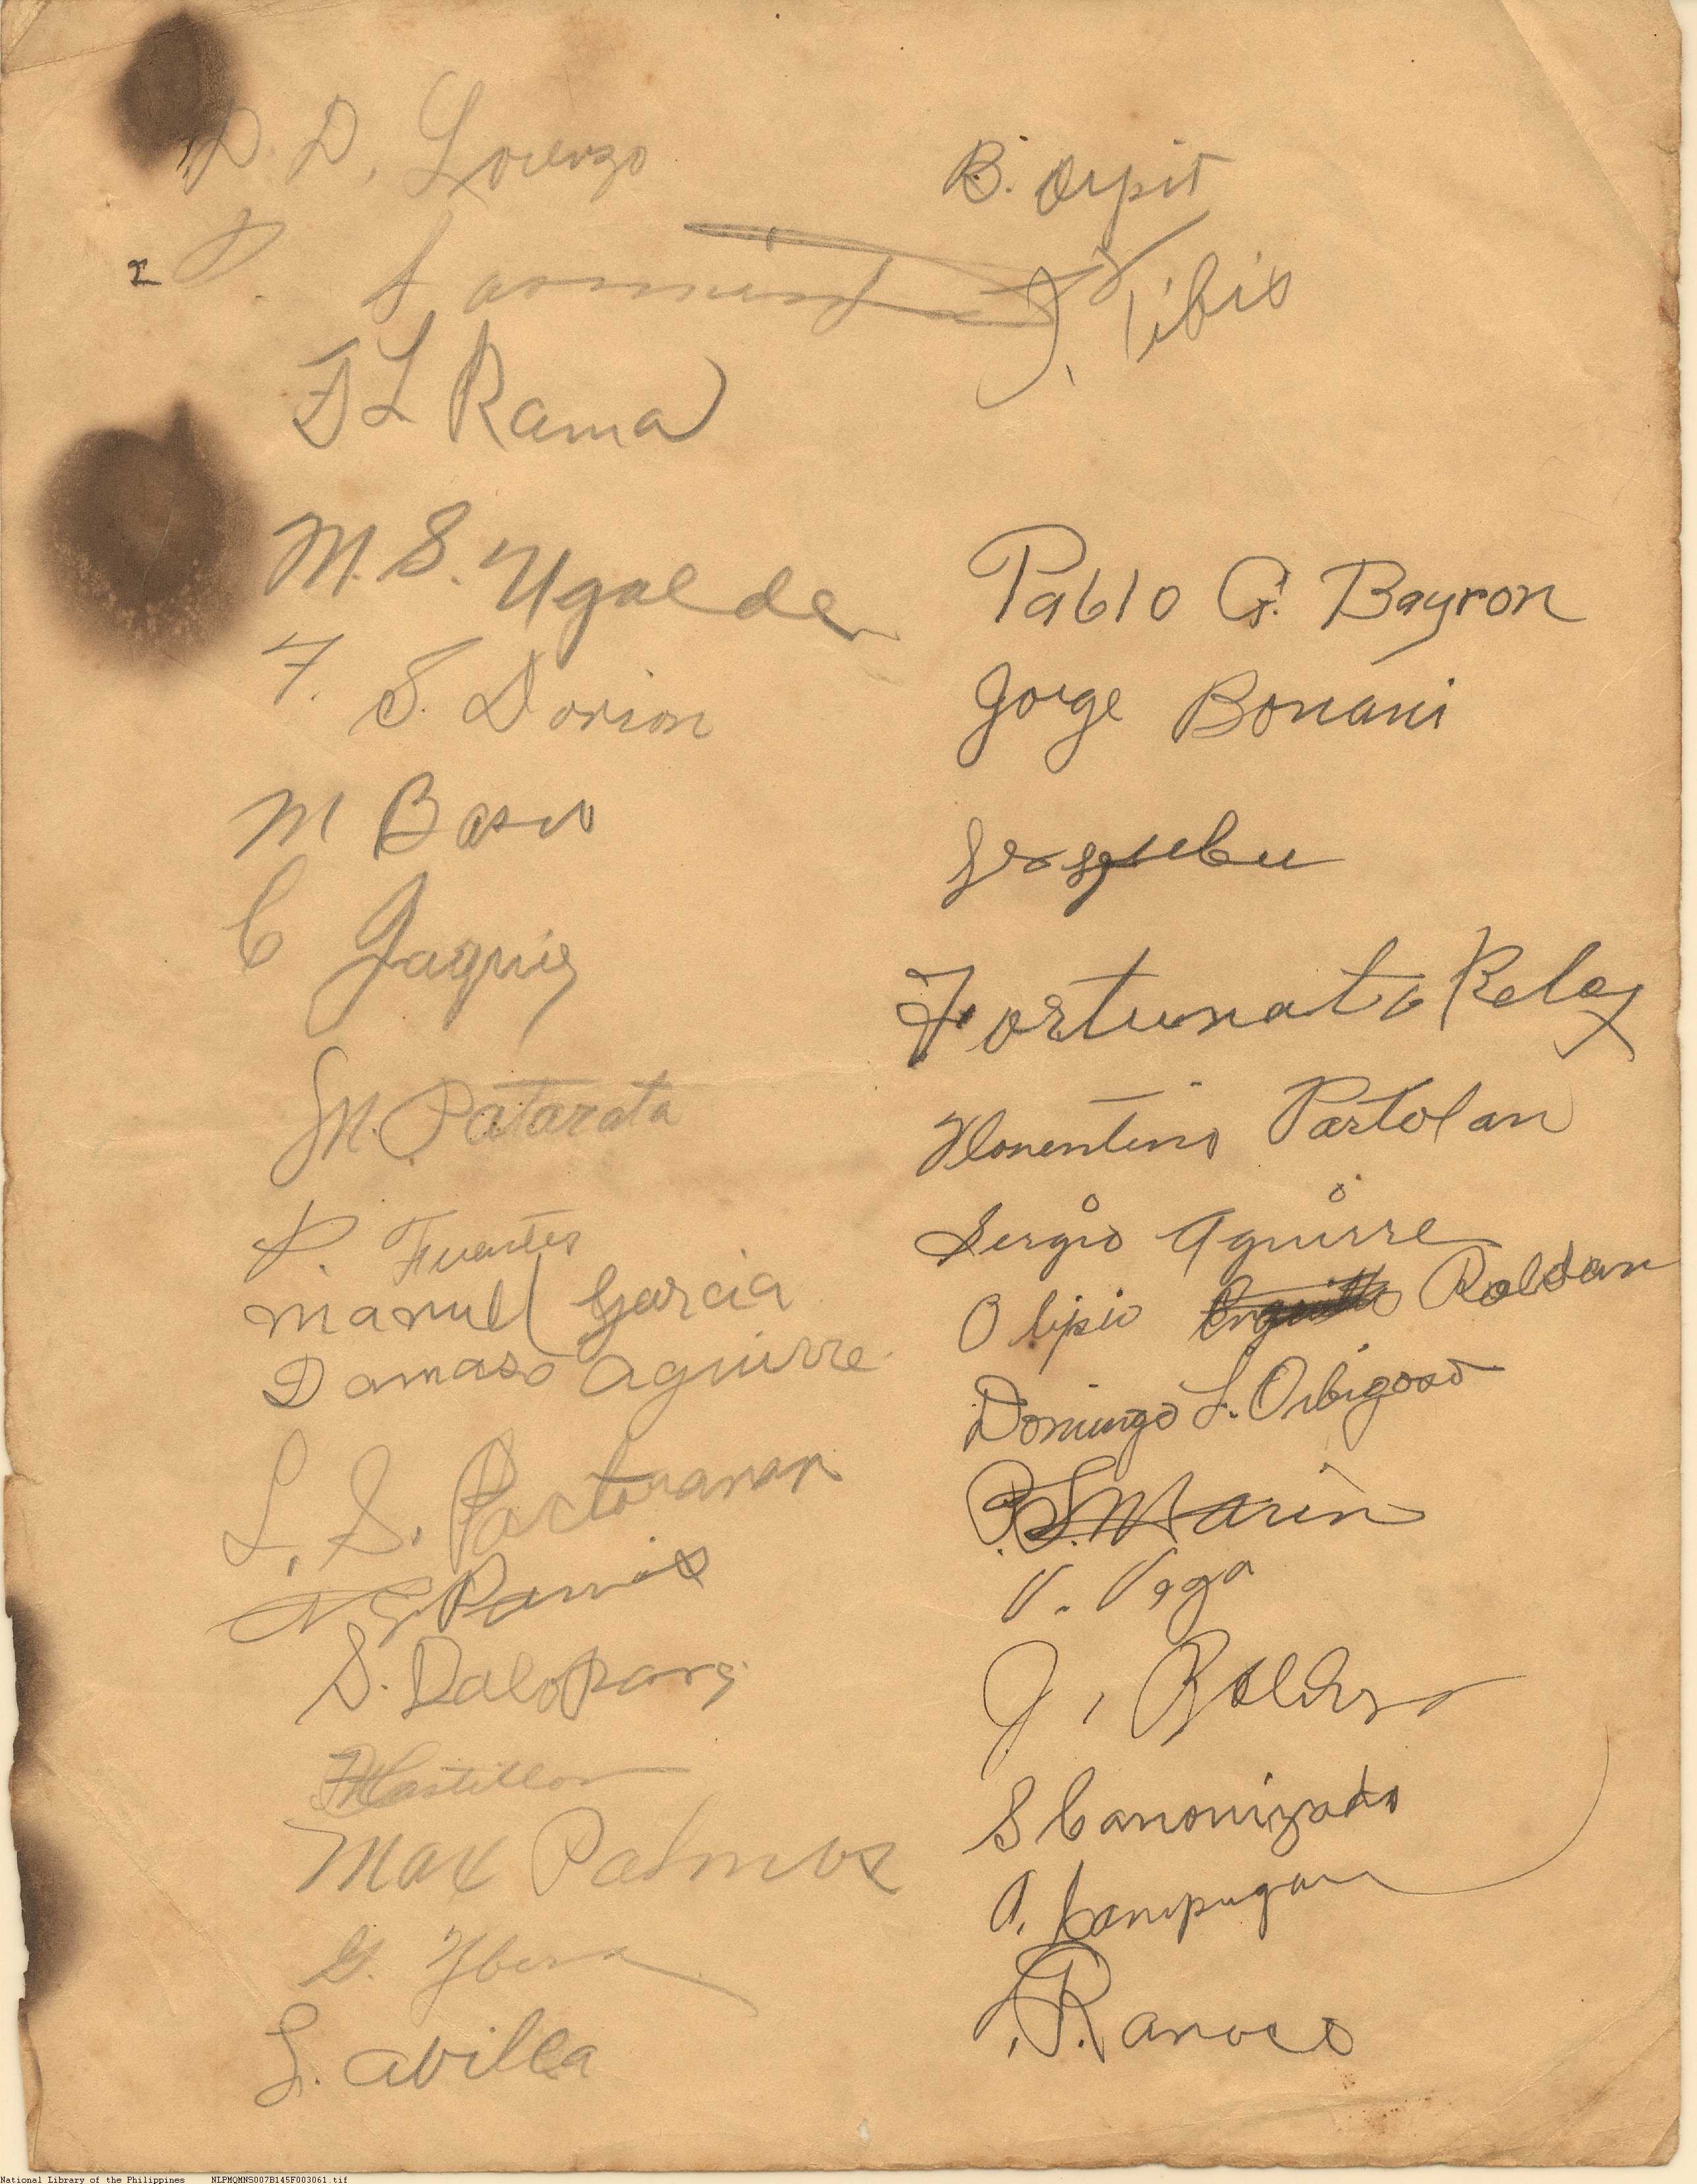 D. D. Lorenzo
P. Sarmiento
F L Rama
M. S. Ugalde
F. S. Dorion
M Baso
C Jaquis
M. Patarata
P. Fuentes
Manuel Garcia
Damaso Aguirre
L. S. Pastoranan
S.
F Castillon
Max Palmos
G. Ybera
L. Avilla
B. Orpit
J. Tibis
Pablo G. Bayron
Jorge Bonani
Fortunato Relox
Florentino Partolan
Sergio Aguirre
Olipio Roldan
Domingo L. Orbigoso
P. S. Marin
V. Vega
J.
S Canonizado
A. Campugan
F. R. Ranoco
National Library of the Philippines NLPMQMNS007B145F003061.tif